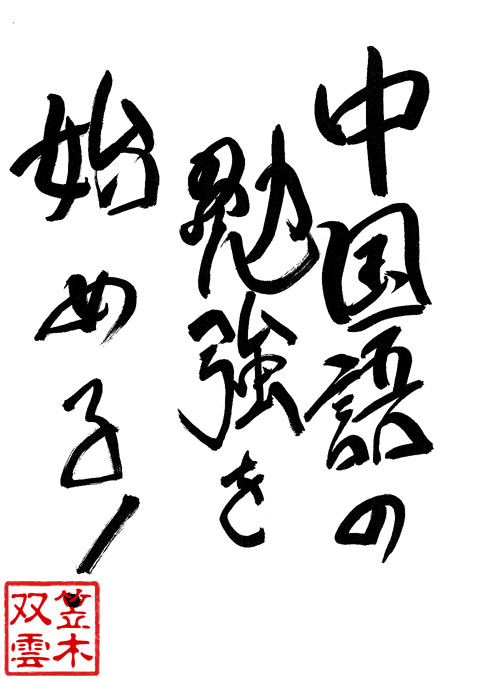 中国語の
勉強を
始める!
笠木
双雲